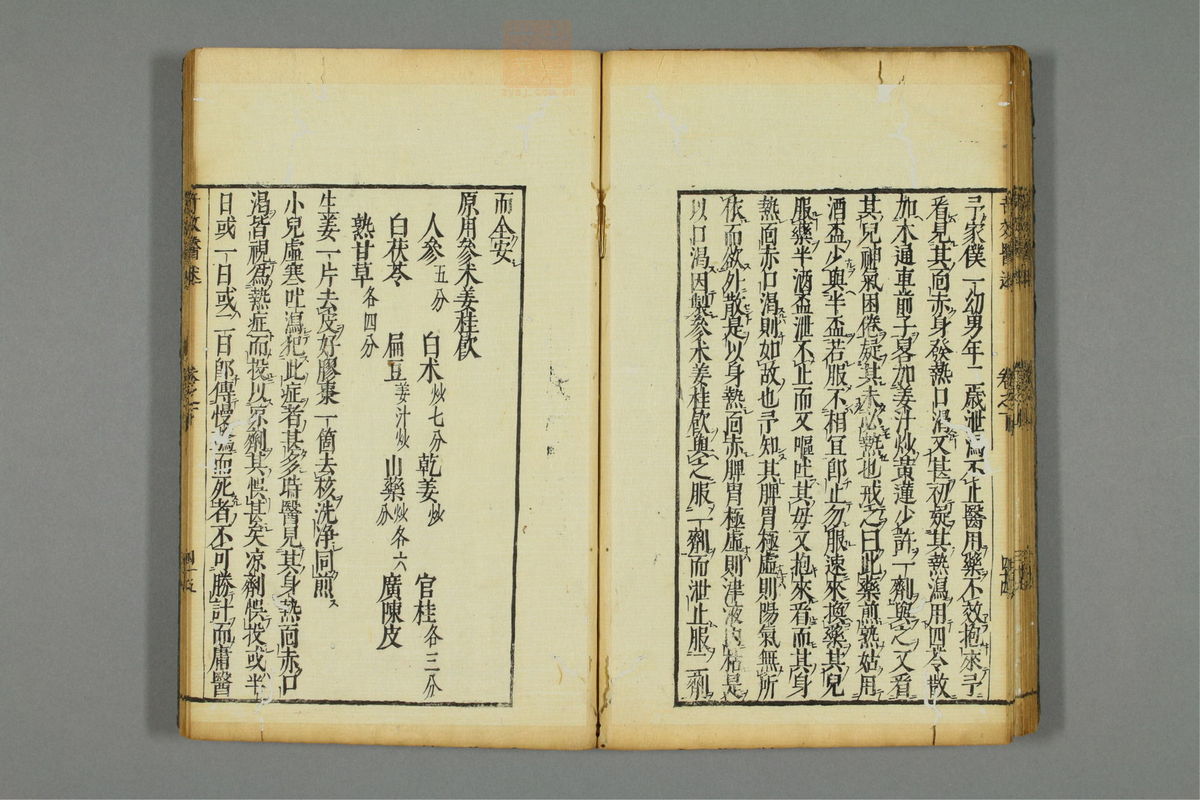 予家僕一幼男年二歳泄瀉不止醫用藥不效抱來予
看見其面赤身發熱口渴又甚初疑其熱瀉用四苓散
加木通車前子畧加姜汁炒黄連少許一劑與之又看
其兒神氣困倦疑其未必熱也戒之曰此藥煎熟姑用
酒盃少與半盃若服不相宜即止勿服速來換藥其兒
服藥半酒盃泄不止而又嘔吐其母又抱來看而其身
熱面赤口渴則如故也予知其脾胃極虚則陽氣無所
依而欲外散是以身熱面赤脾胃極虚則津液内枯是
以口渴因製參术姜桂飲與之服一劑而泄止服二劑
而全安
原用參术姜桂飲
人參五分 白术炒七分 乾姜炒 官桂各三分
白茯苓 扁豆姜汁炒 山藥炒各六分 廣陳皮
熟甘草各四分
生姜一片去皮好膠棗一箇去核洗净同煎
小兒虚寒吐瀉犯此症者甚多時醫見其身熱面赤口
渴皆視爲熱症而投以凉劑其悞甚矣凉劑悞投或半
日或一日或二日即傳慢驚而死者不可勝計而庸醫